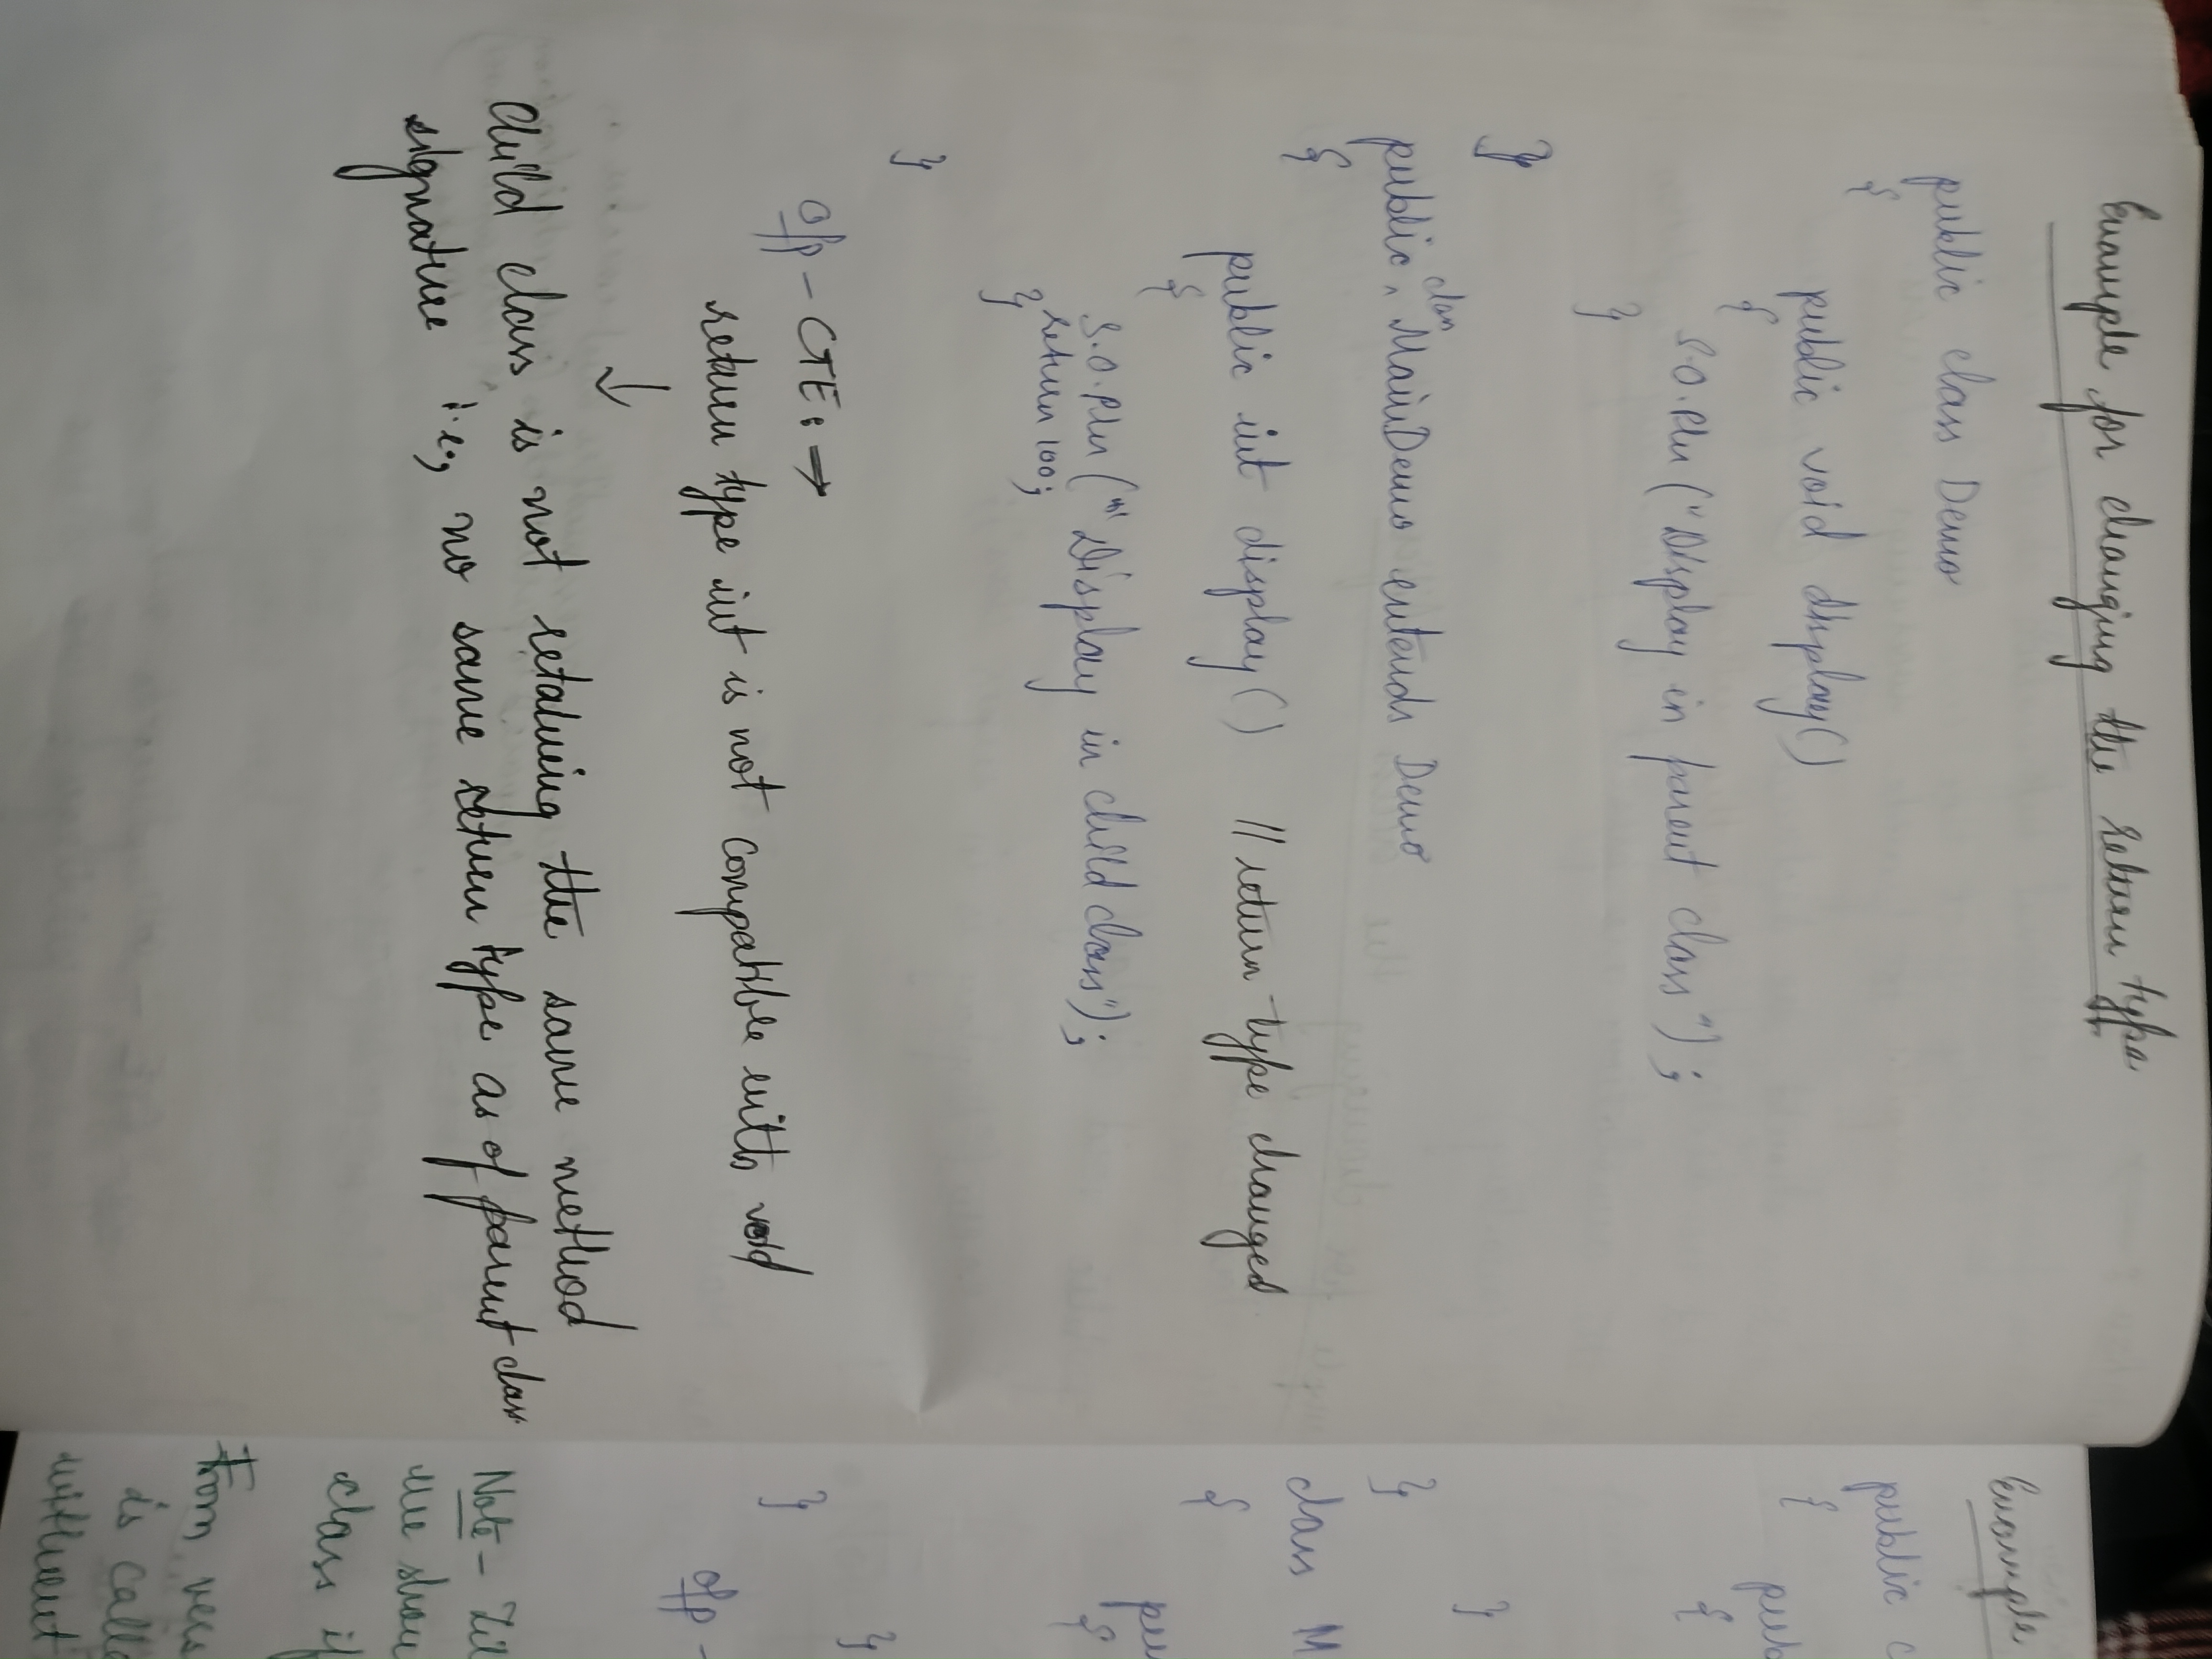 Example for changing the return type
public class Demo
{
public void display()
{
S.O.Pln ("Display in parent class");
}
}
public class MainDemo extends Demo
{
public int display() // return type changed
{
S.O.Pln ("Display in child class");
return 100;
}
}
O/p - CTE: ⇒
return type int is not compatible with void
↓
Child class is not retaining the same method
signature i.e., no same return type as of parent class
Example
public c
{
pub
{
}
}
class M
{
pu
{
}
}
O/p -
Note - Til
we shou
class if
From vers
is calle
without